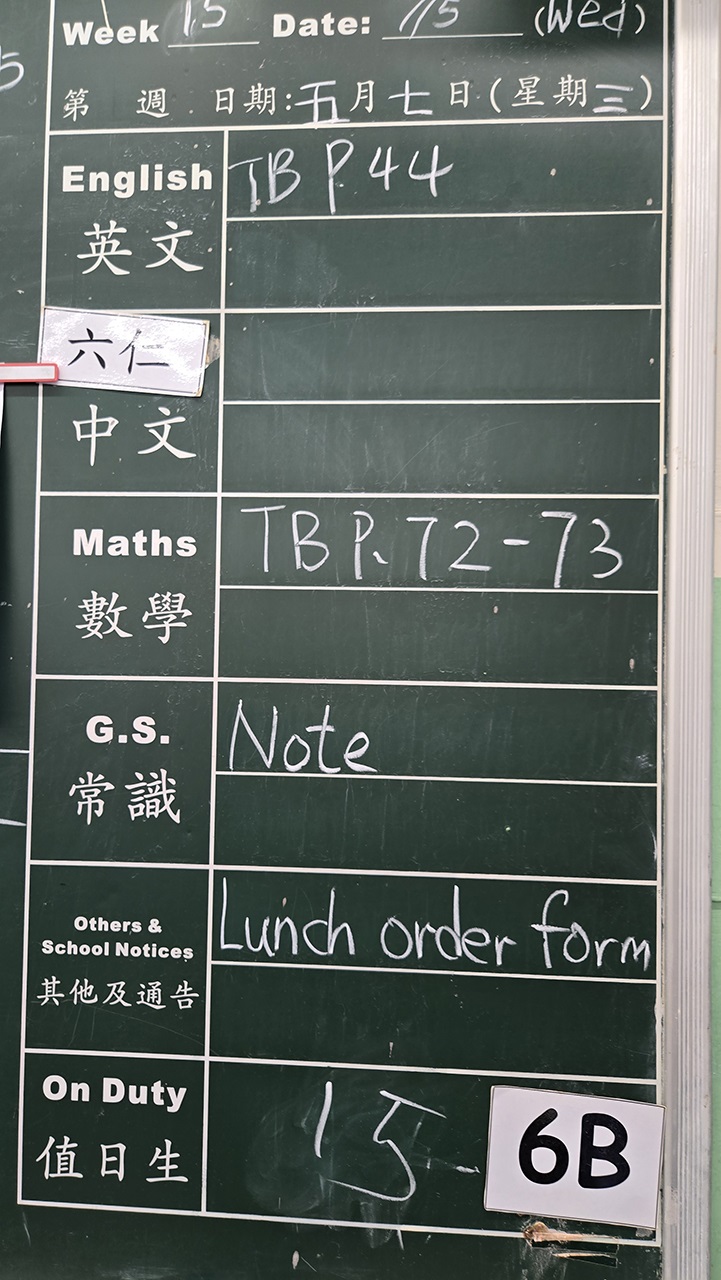 Week 15 Date: 7/5 (Wed)
第 週 日期:五月七日(星期三)
English TB P.44
英文
六仁
中文
Maths TB P.72-73
數學
G.S. Note
常識
Others & School Notices Lunch order form
其他及通告
On Duty 15
值日生
6B